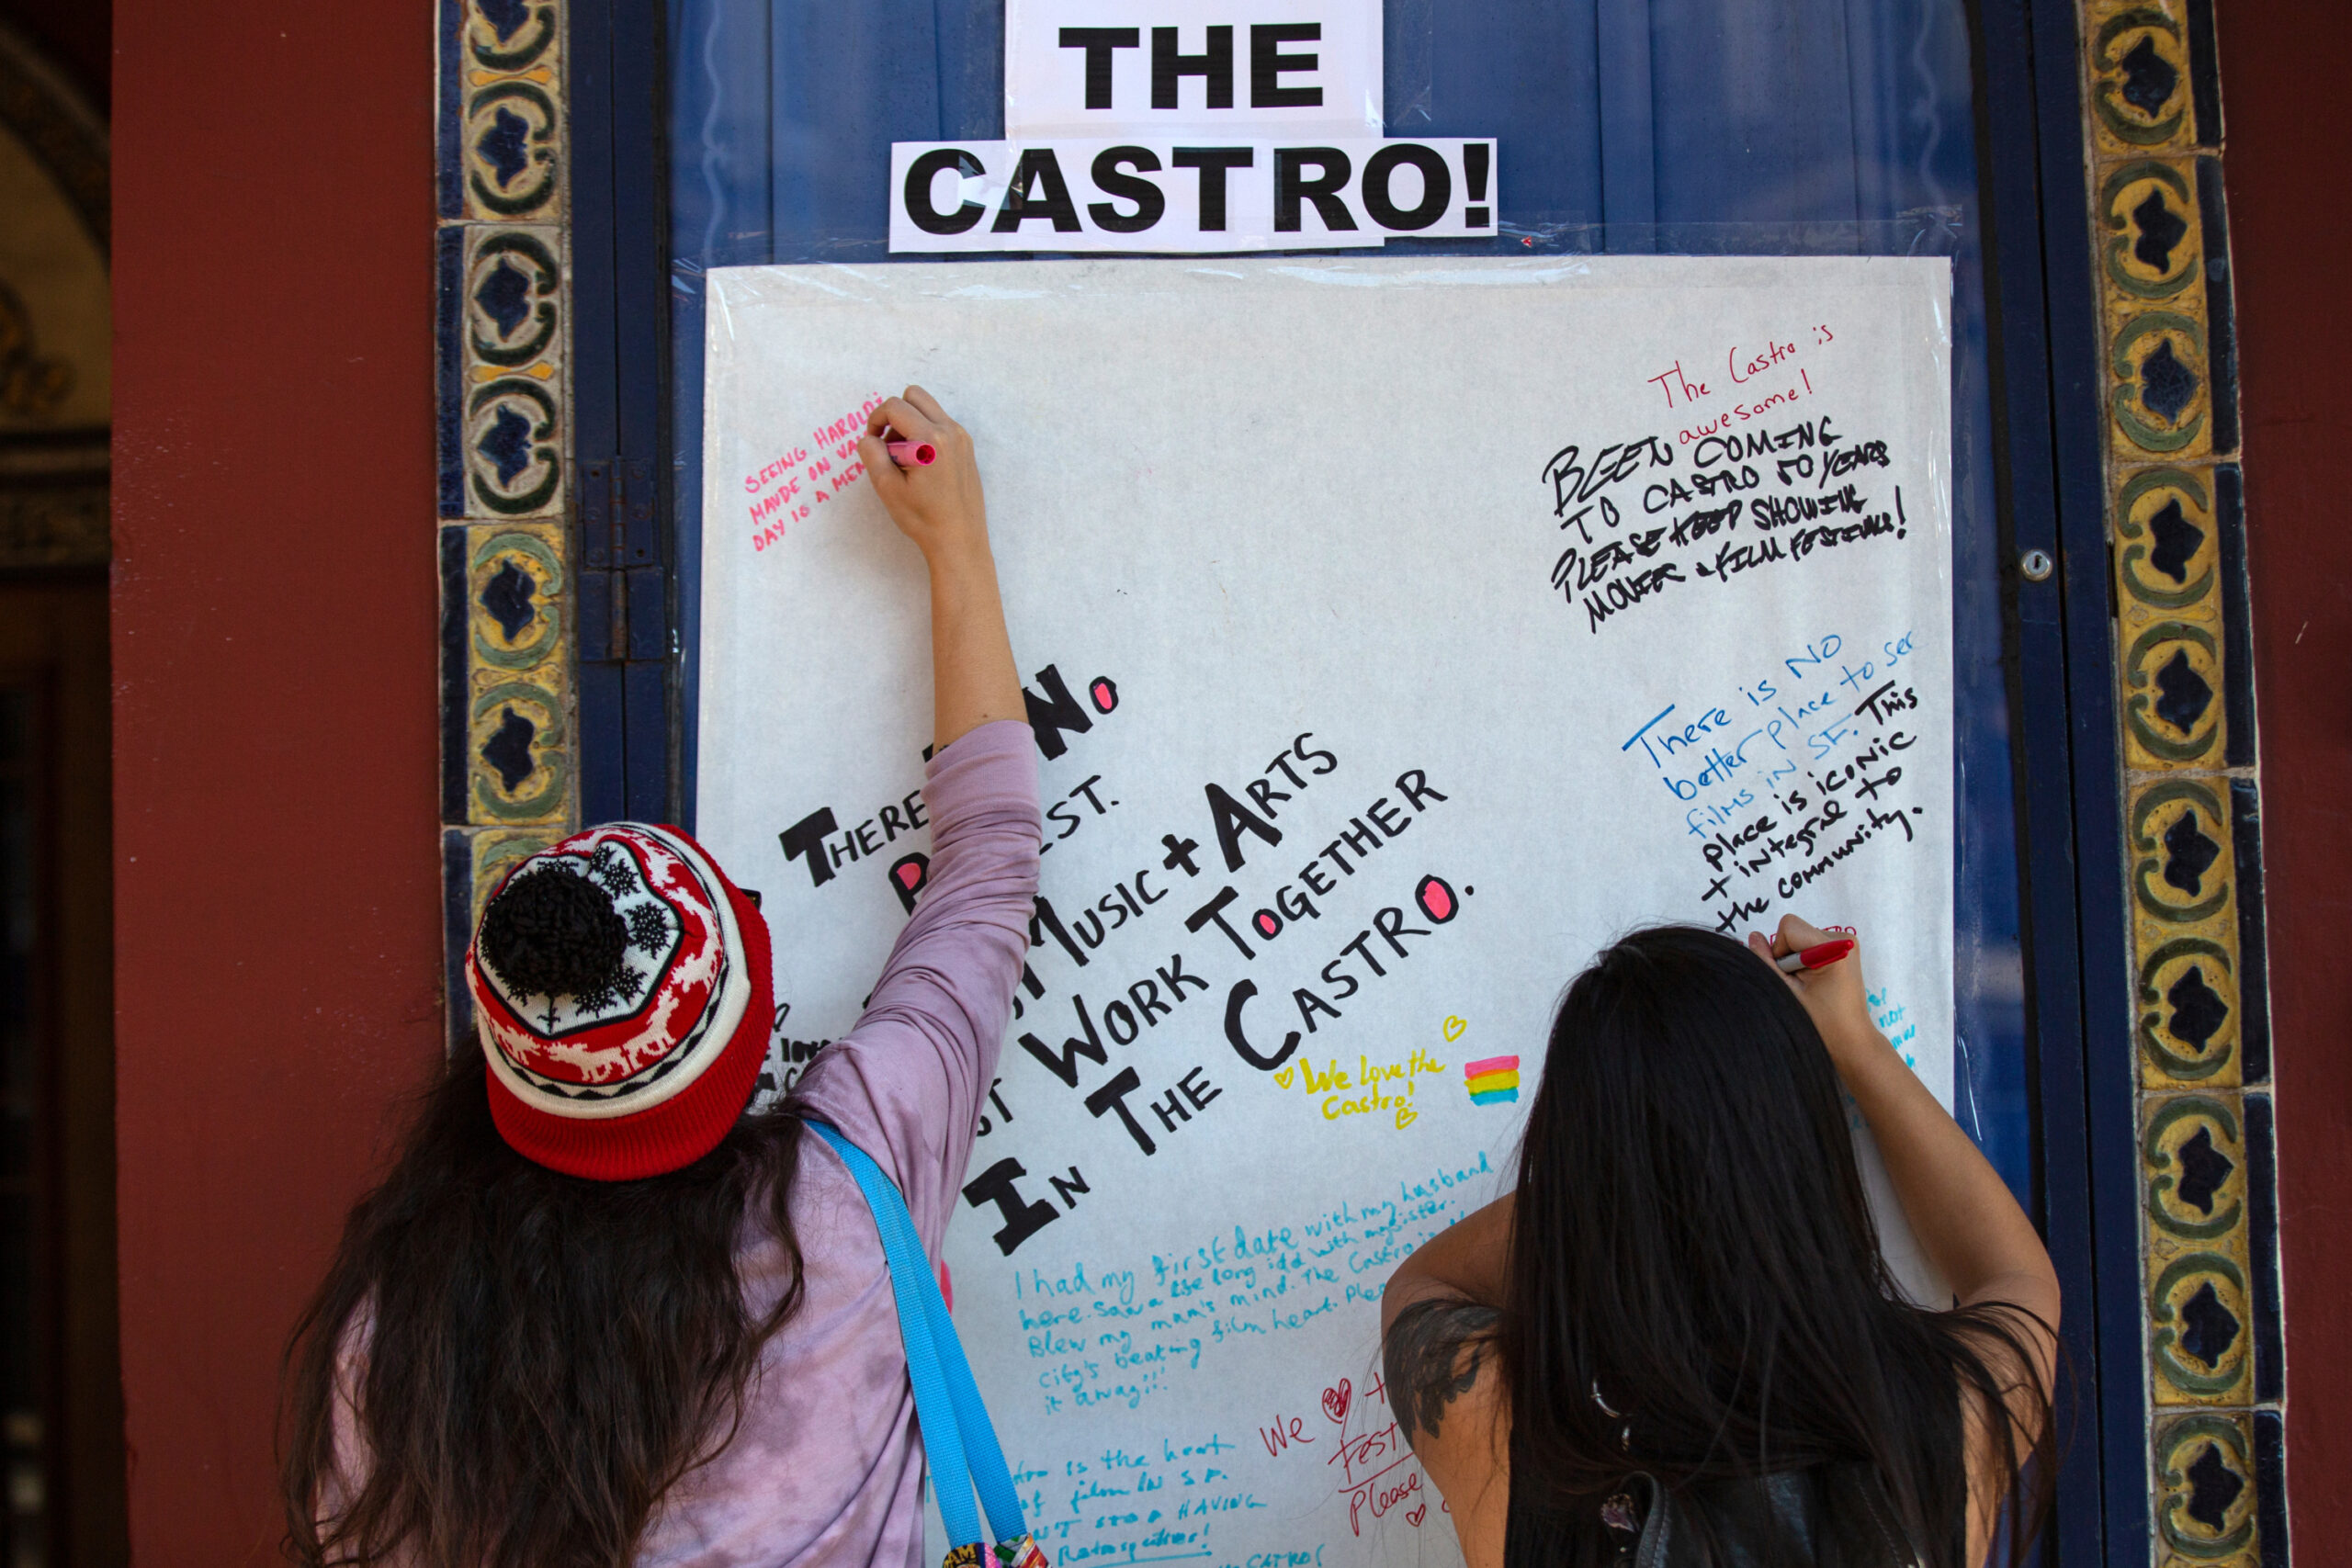 THE
CASTRO!
SEEING HAROLD
MAUDE ON
DAY IS A
The Castro is
awesome!
BEEN COMING
TO CASTRO 50 YEARS
PLEASE KEEP SHOWING
MOVIES & FILM FESTIVALS!
There is NO
better place to see
films in SF. This
place is iconic
+ integral to
the community.
N.
THERE
EST.
MUSIC + ARTS
WORK TOGETHER
IN THE CASTRO.
We love the
Castro!
love
not
I had my first date with my husband
here. Saw a
Blew my mum's mind. The Castro is
city's beating film heart.
it away!!!
is the heart
of film in S.F.
HAVING
We ♥ +
Fest
Please